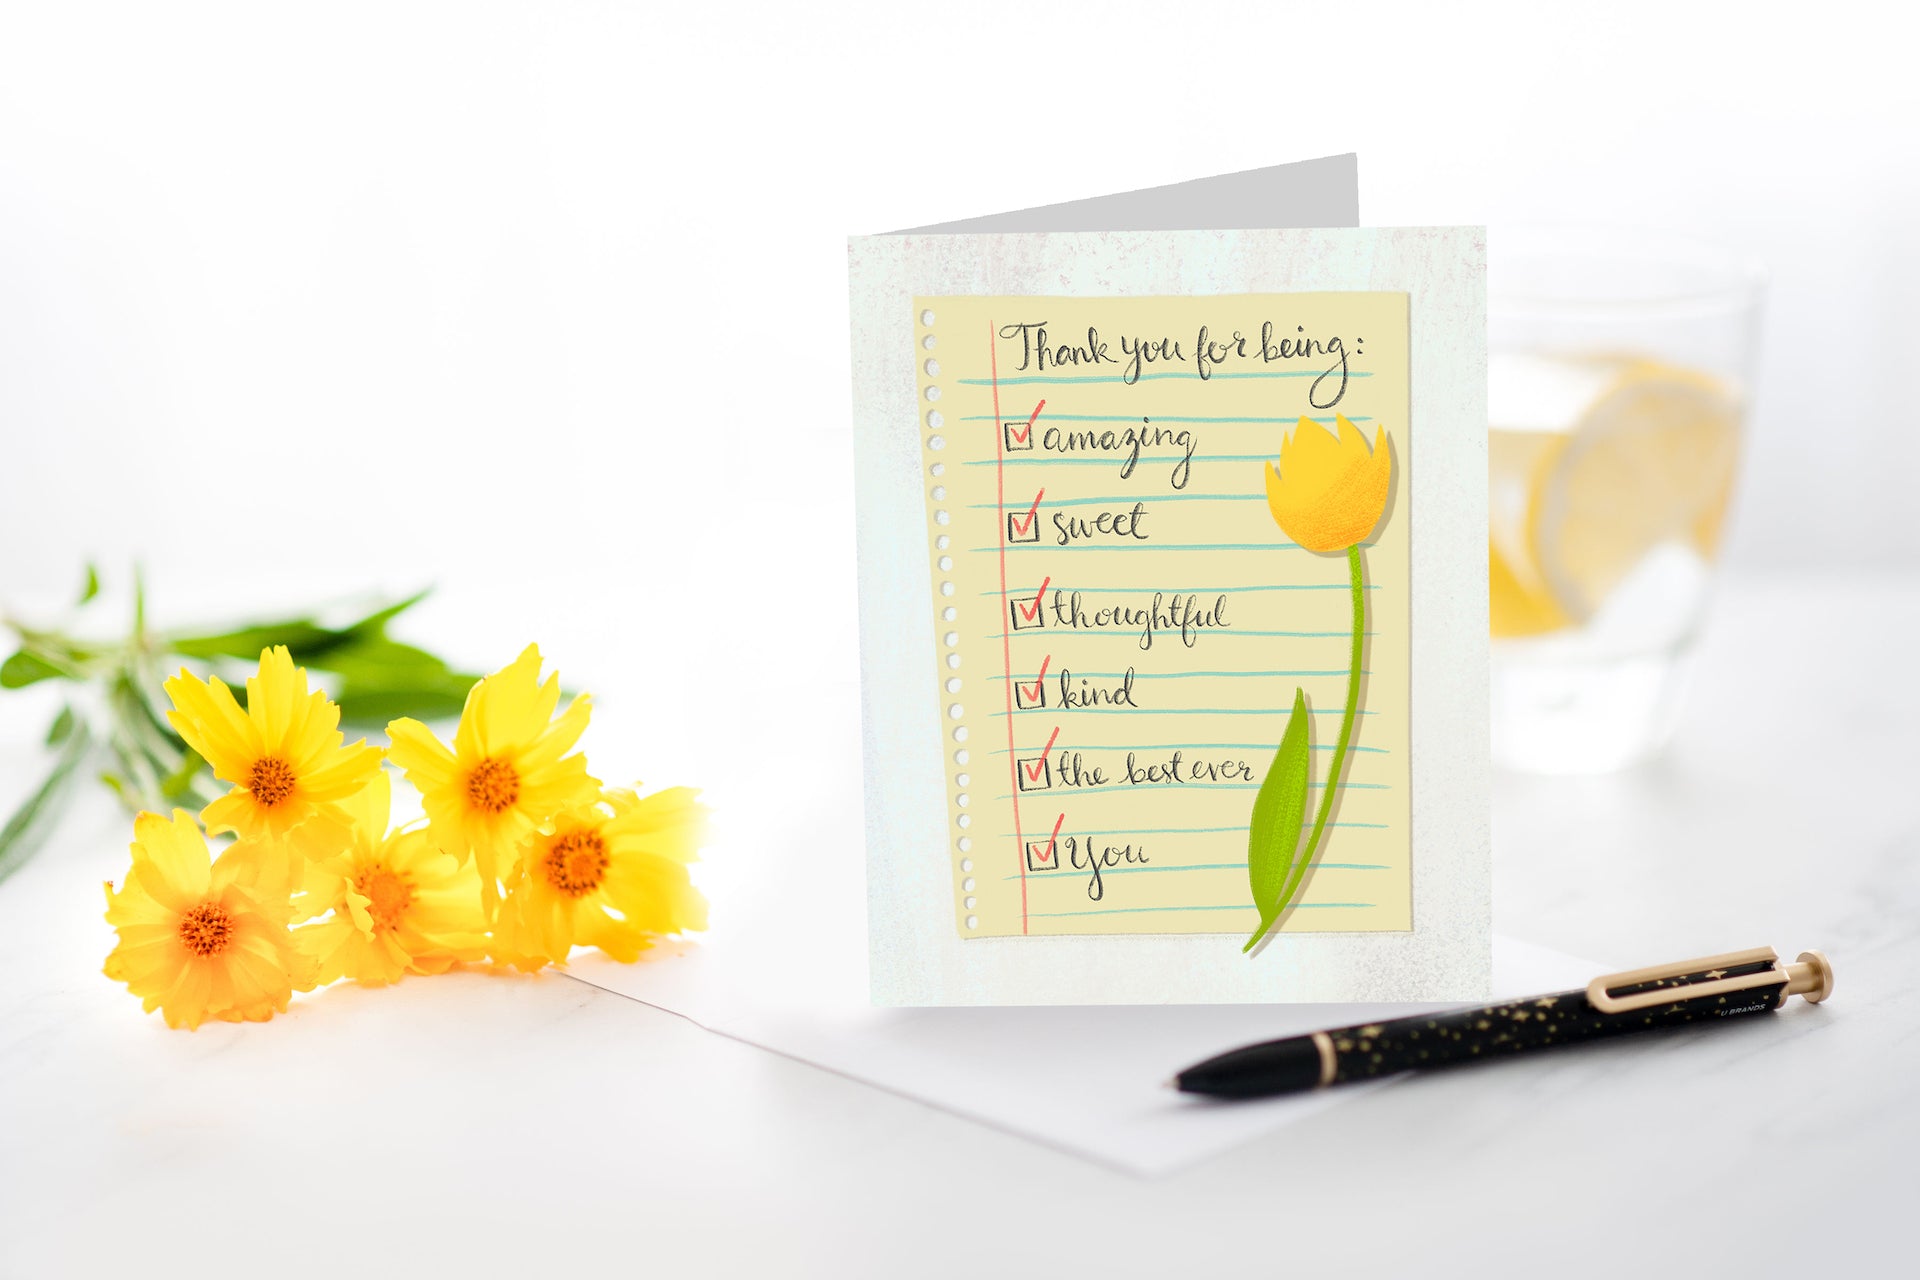 Thank you for being:
amazing
sweet
thoughtful
kind
the best ever
You
U BRANDS